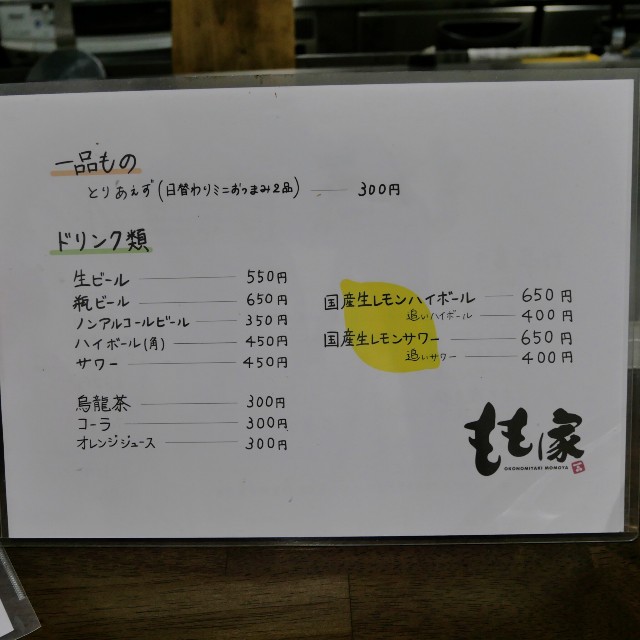 一品もの
とりあえず(日替わりミニおつまみ2品) 300円
ドリンク類
生ビール 550円
瓶ビール 650円
ノンアルコールビール 350円
ハイボール(角) 450円
サワー 450円
烏龍茶 300円
コーラ 300円
オレンジジュース 300円
国産生レモンハイボール 650円
追いハイボール 400円
国産生レモンサワー 650円
追いサワー 400円
もも家
OKONOMIYAKI MOMOYA